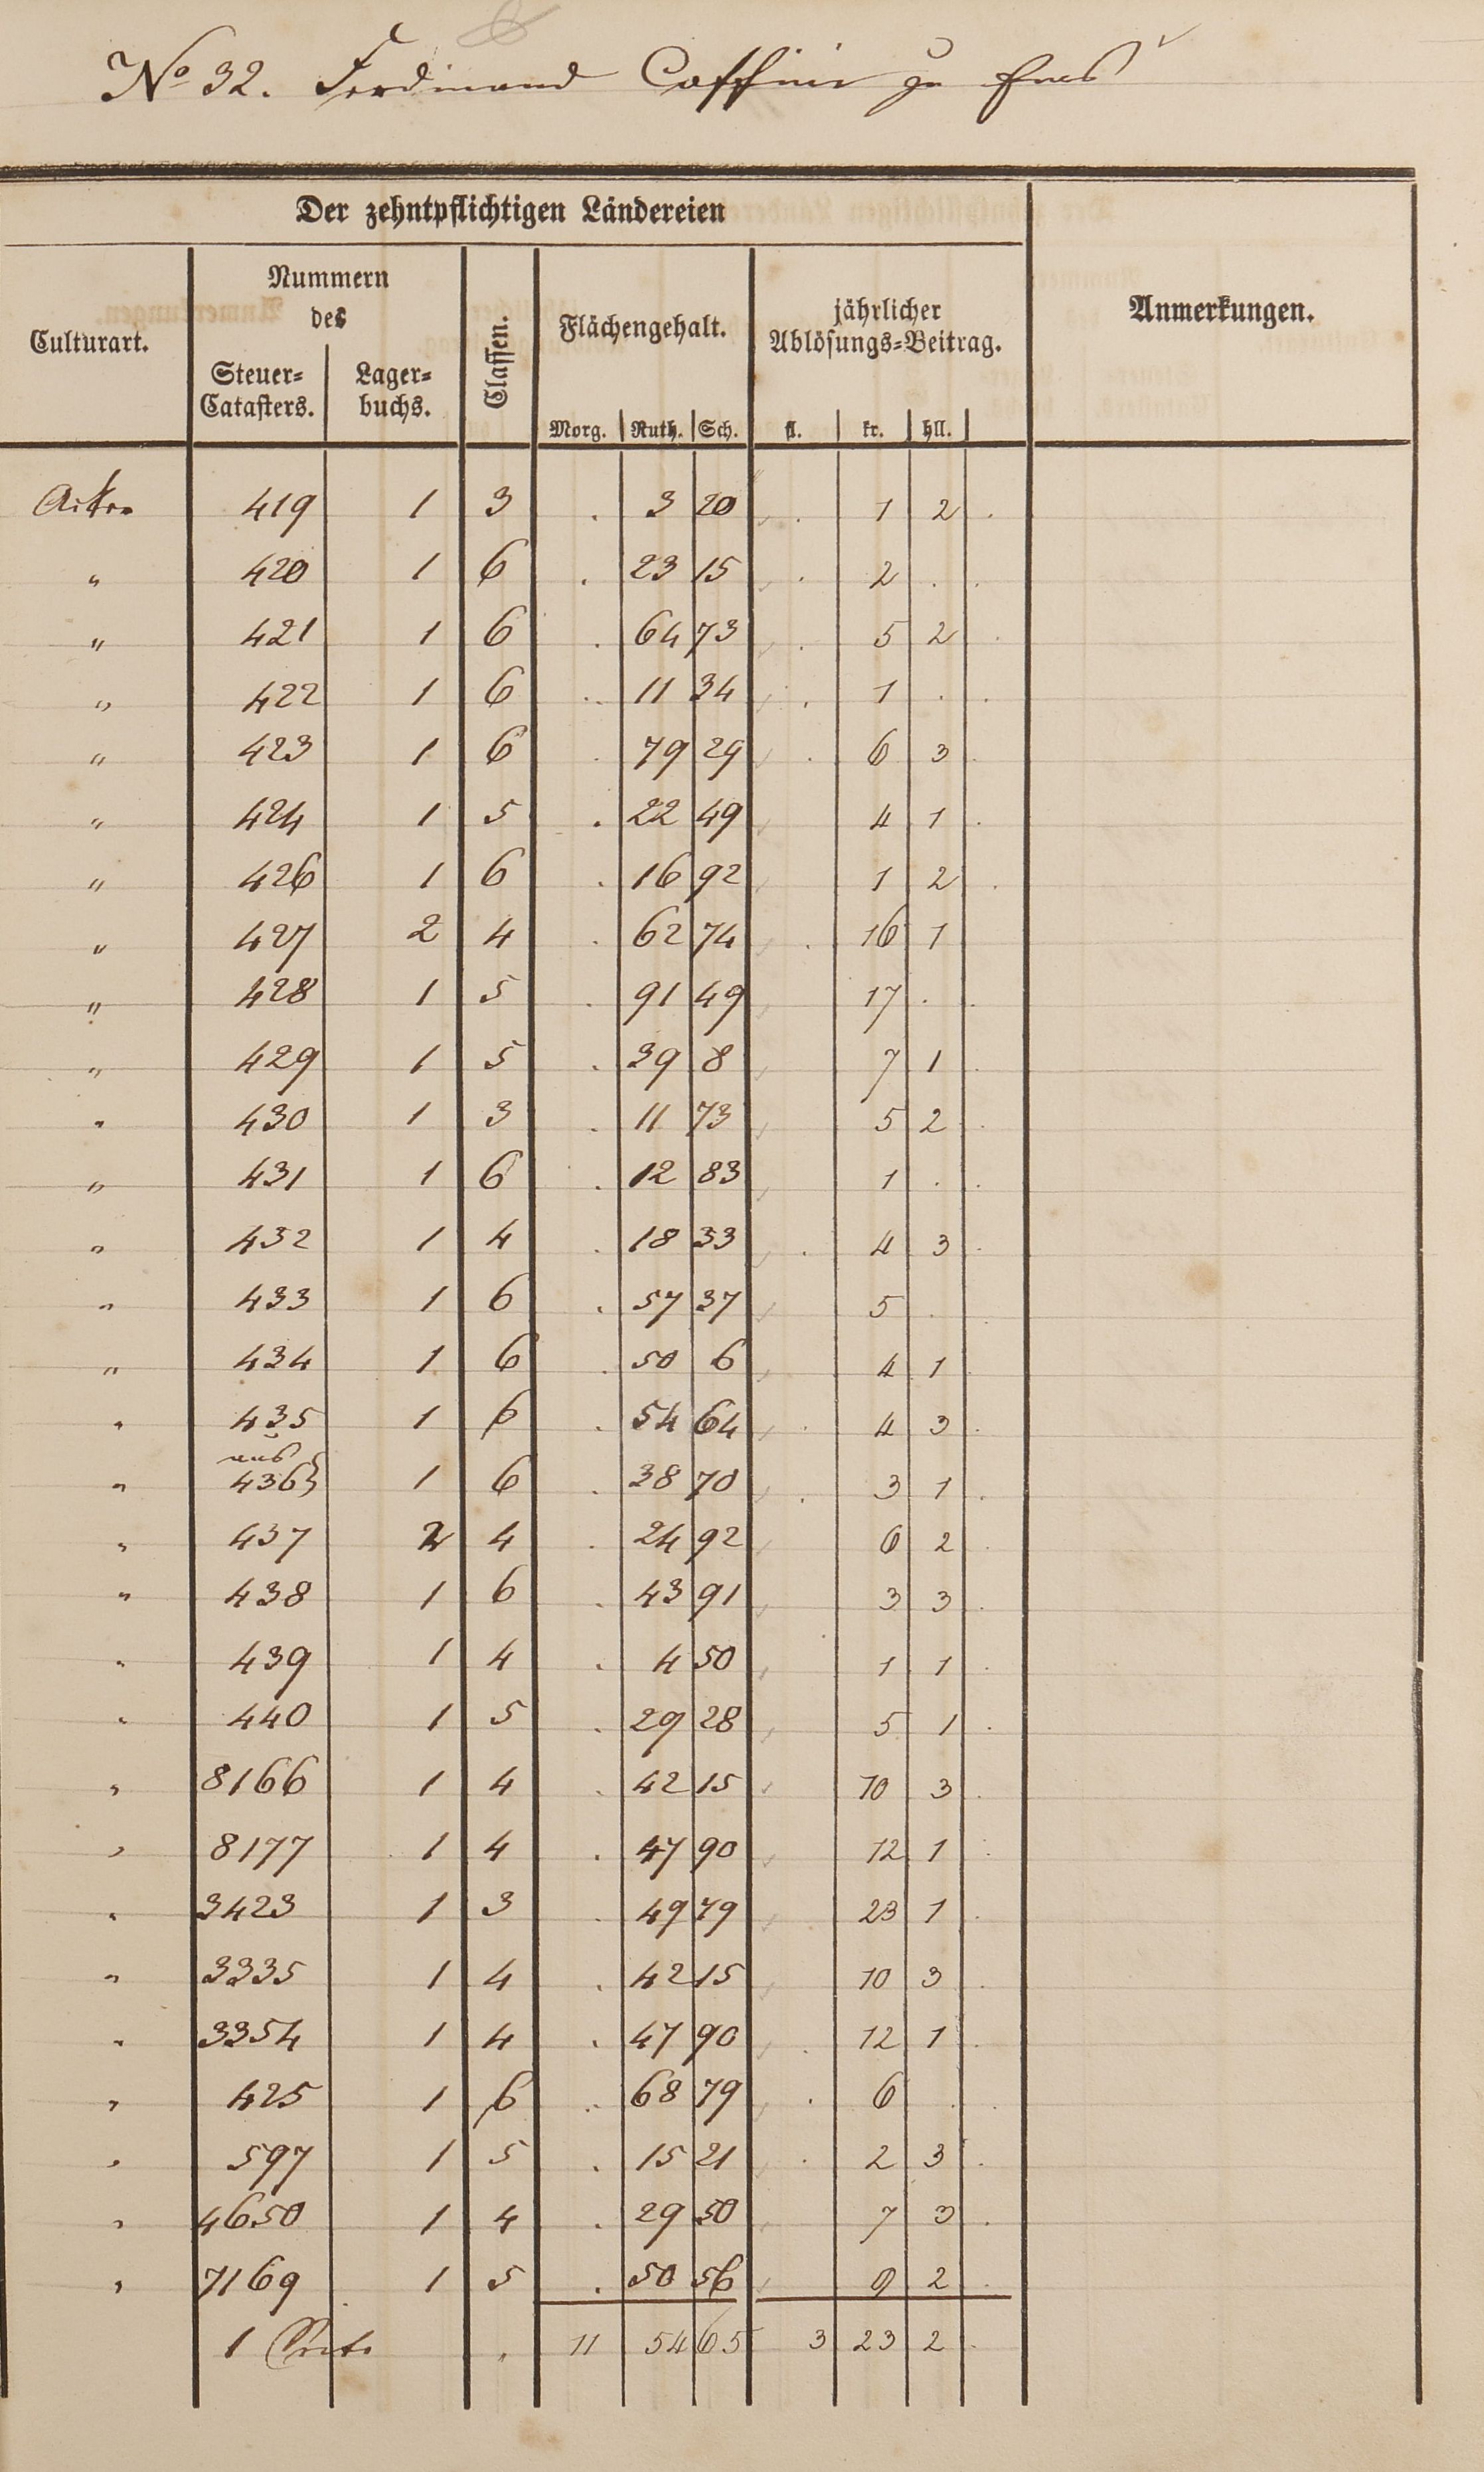 No 32. Ferdinand Caffinir zu Ems
Der zehntpflichtigen Ländereien
Culturart.
Nummern
des
Steuer=
Catasters.
Lager=
buchs.
Classen.
Flächengehalt.
Morg. Ruth. Sch.
jährlicher
Ablösungs=Beitrag.
fl. kr. hll.
Anmerkungen.
Acker 419 1 3 . 3 20 . 1 2 .
" 420 1 6 . 23 15 . 2 . .
" 421 1 6 . 64 73 . 5 2 .
" 422 1 6 . 11 34 . 1 . .
" 423 1 6 . 79 29 . 6 3 .
" 424 1 5 . 22 49 4 1 .
" 426 1 6 . 16 92 1 2 .
" 427 2 4 . 62 74 . 16 1
" 428 1 5 . 91 49 17 . .
" 429 1 5 . 39 8 7 1 .
" 430 1 3 . 11 73 5 2 .
" 431 1 6 . 12 83 1 . .
" 432 1 4 . 18 33 . 4 3 .
" 433 1 6 . 57 37 5 .
" 434 1 6 . 50 6 4 1
" 435 1 6 . 54 64 . 4 3 .
aus
" 436 1 6 . 38 70 . 3 1 .
" 437 2 4 . 24 92 6 2 .
" 438 1 6 . 43 91 3 3 .
" 439 1 4 . 4 50 1 1 .
" 440 1 5 . 29 28 5 1 .
" 8166 1 4 . 42 15 10 3 .
" 8177 1 4 . 47 90 12 1 .
" 3423 1 3 . 49 79 23 1 .
" 3335 1 4 . 42 15 10 3 .
" 3354 1 4 . 47 90 . 12 1 .
" 425 1 6 . 68 79 . 6 . .
" 597 1 5 . 15 21 . 2 3 .
" 4650 1 4 . 29 50 7 3 .
" 7169 1 5 . 50 56 9 2 .
1 . 11 54 65 3 23 2 .